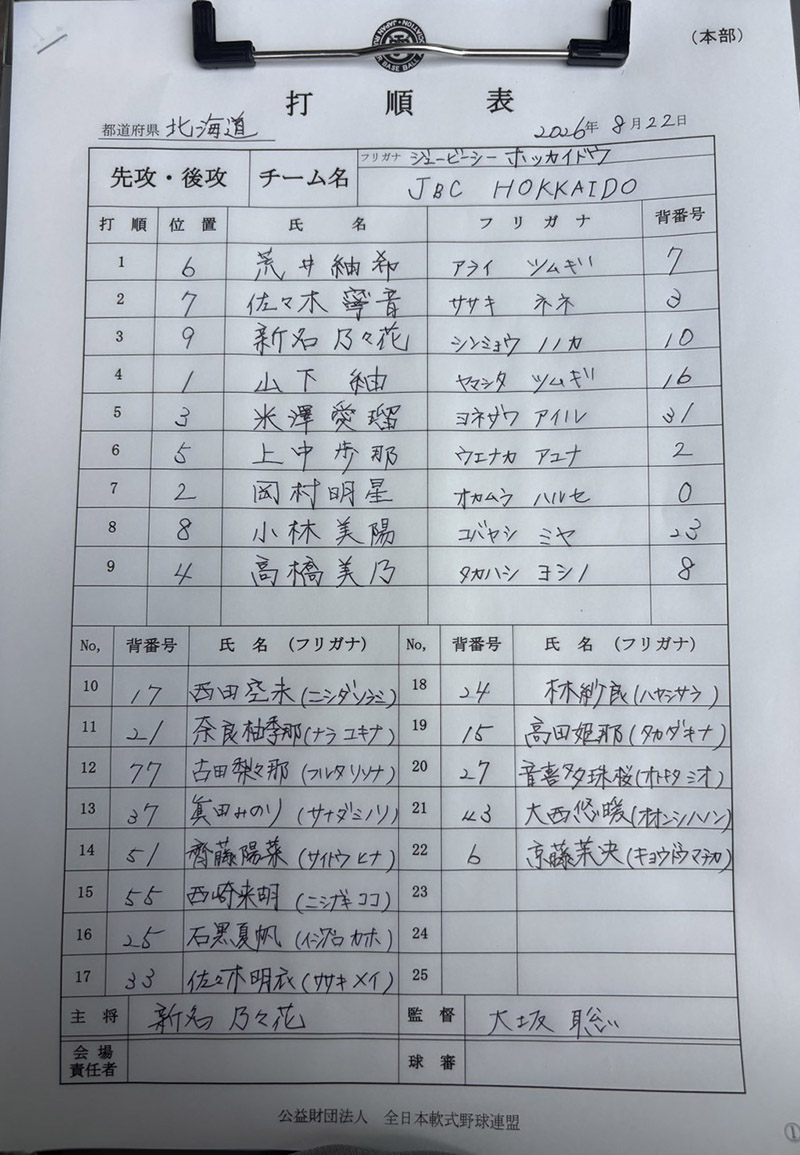 (本部)
打順表
都道府県 北海道 2026年 8月22日
先攻・後攻 チーム名 フリガナ ジェービーシー ホッカイドウ
JBC HOKKAIDO
打順 位置 氏名 フリガナ 背番号
1 6 荒井紬希 アライ ツムギ 7
2 7 佐々木寧音 ササキ ネネ 3
3 9 新名 乃々花 シンミョウ ノノカ 10
4 1 山下 紬 ヤマシタ ツムギ 16
5 3 米澤愛瑠 ヨネザワ アイル 31
6 5 上中歩那 ウエナカ アユナ 2
7 2 岡村明星 オカムラ ハルセ 0
8 8 小林美陽 コバヤシ ミヤ 23
9 4 高橋美乃 タカハシ ヨシノ 8
No, 背番号 氏名(フリガナ) No, 背番号 氏名(フリガナ)
10 17 西田空未(ニシダソラミ) 18 24 林紗良(ハヤシサラ)
11 21 奈良柚季那(ナラ ユキナ) 19 15 高田姫那(タカダキナ)
12 77 古田梨々那(フルタリリナ) 20 27 音喜多珠桜(オトキタ ミオ)
13 37 眞田みのり(サナダミノリ) 21 43 大西悠暖(オオニシハノン)
14 51 齊藤陽菜(サイトウ ヒナ) 22 6 京藤茉央(キョウドウマヂカ)
15 55 西崎来明(ニシザキ ココ) 23
16 25 石黒夏帆(イシグロ カホ) 24
17 33 佐々木明衣(ササキ メイ) 25
主将 新名 乃々花 監督 大坂 聡
会場責任者 球審
公益財団法人 全日本軟式野球連盟
①